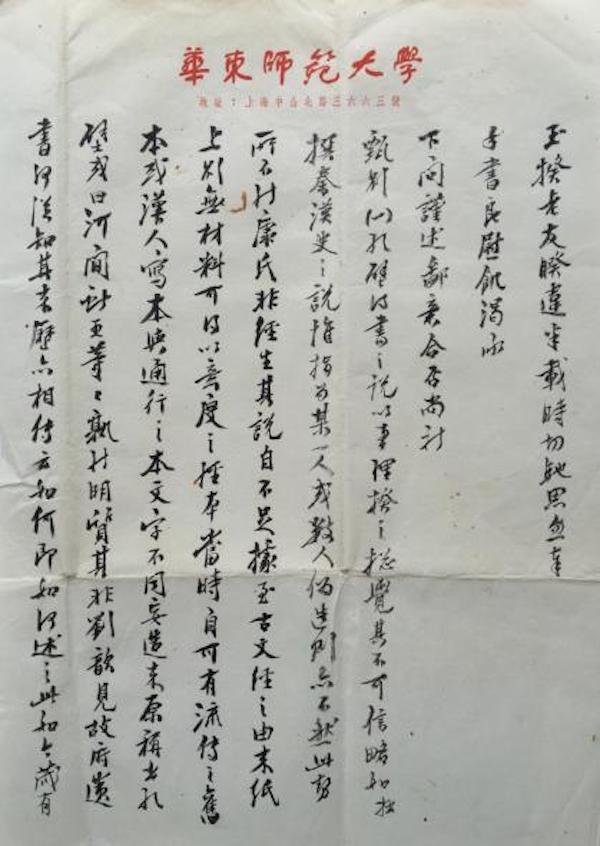 華東師範大學
地址：上海中山北路三六六三號
玉揆老友睽違半載時切馳思忽奉
手書良慰飢渴承
下問謹述鄙衷合否尚祈
甄別以孔壁得書之說以事理揆之總覺其不可信略如拙
撰秦漢史之說惟指為某一人或數人偽造則亦不然此勢
所不行康氏非經生其說自不足據至古文經之由來紙
上別無材料可得以意度之經本當時自可有流傳之舊
本或漢人寫本與通行之本文字不同妄造來原稱出孔
壁或曰河間獻王等等孰能明質其非劉歆見故府遺
書何從知其來歷亦相傳云如何即如何述之此如今藏有